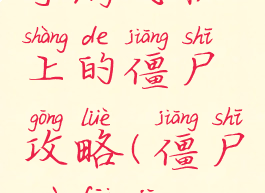 shàng de jiāng shī
上的僵尸
gōng lüè jiāng shī
攻略(僵尸